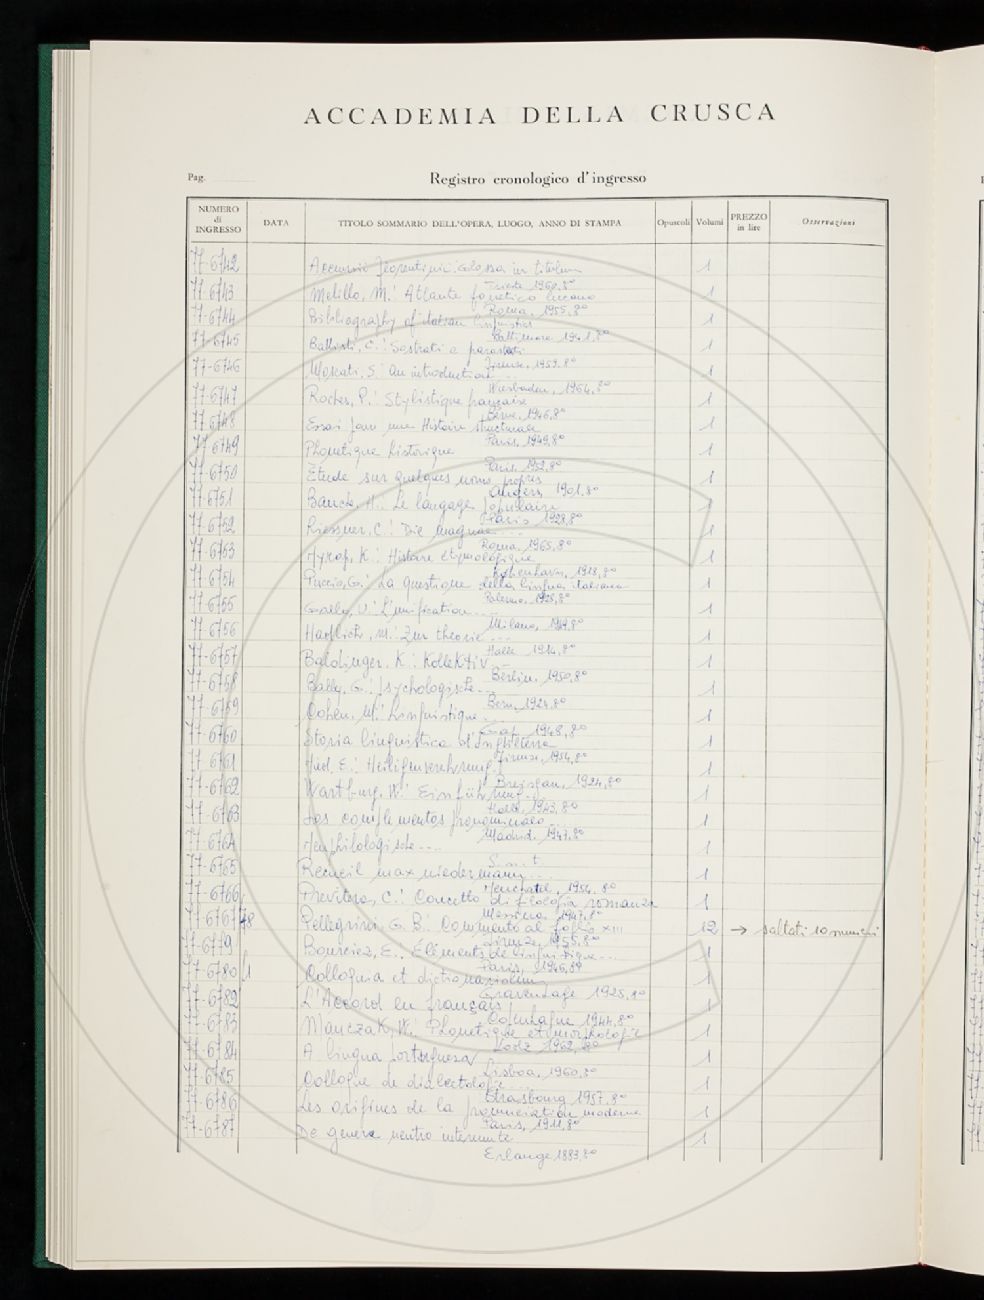 ACCADEMIA DELLA CRUSCA
Pag.
Registro cronologico d'ingresso
NUMERO di INGRESSO DATA TITOLO SOMMARIO DELL'OPERA, LUOGO, ANNO DI STAMPA Opuscoli Volumi PREZZO in lire Osservazioni
77-6742 in titulum 1
Trieste 1960, 8°
77-6743 Melillo, M.: Atlante fonetico lucano 1
Roma, 1955, 8°
77-6744 Bibliography of italian linguistics 1
Baltimore 1941, 8°
77-6745 Battisti, C.: Sostrati e parastrati 1
Firenze, 1959. 8°
77-6746 Moscati, S.: An introduction... 1
Wiesbaden, 1964, 8°
77-6747 Roches, P.: Stylistique française 1
1946, 8°
77-6748 Essai pour une Histoire structurale 1
Paris, 1949, 8°
77 6749 Phonétique historique 1
Paris, 1952, 8°
77-6750 Étude sur quelques noms propres 1
Angers, 1901, 8°
77-6751 Bauche, H.: Le langage populaire 1
Paris 1928, 8°
77-6752 C.: Die magnae ... 1
Roma, 1965, 8°
77-6753 Nyrop, K.: Histoire étymologique 1
8°
77-6754 Puccio, G.: La questione della lingua italiana 1
Palermo, 8°
77-6755 Gallo, U.: L'unification ... 1
Milano, 8°
77-6756 M.: Zur theorie ... 1
Halle 1914, 8°
77-6757 Baldinger, K.: Kollektiv 1
Berlin, 1950, 8°
77-6758 Bally, G.: Psychologische... 1
Bern, 1924, 8°
77-6759 Cohen, M.: Linguistique... 1
1948, 8°
77-6760 Storia linguistica d'Inghilterra 1
Firenze, 1954, 8°
77 6761 E.: Heiligenverehrung. 1
1924, 8°
77-6762 Wartburg, W.: Einführung... 1
Halle, 1943, 8°
77-6763 Los complementos pronominales 1
Madrid, 1947, 8°
77-6764 Neuphilologische .... 1
S.n.t.
77-6765 Recueil max niedermann ... 1
Neuchatel, 1954, 8°
77-6766 Previtera, C.: Concetto di filologia romanza 1
Messina, 1947, 8°
77-6767/78 Pellegrini, G. B.: Commento al foglio XIII 12 → saltati 10 numeri
Firenze, 1955, 8°
77-6779 Bourciez, E., Éléments de linguistique... 1
Paris, 1946, 8°
77-6780/1 Colloquia et dictionariolum 1
1925, 8°
77-6782 L'Accord en français 1
Copenhague 1944, 8°
77-6783 Manczak, W.: Phonétique et morphologie 1
Lodz 1962, 8°
77-6784 A lingua portuguesa 1
Lisboa, 1960, 8°
77-6785 Colloque de dialectologie .... 1
Strasbourg 1957, 8°
77-6786 Les origines de la prononciation moderne 1
Paris, 1911, 8°
77-6787 De genere neutro intereunte 1
Erlange 1883, 8°